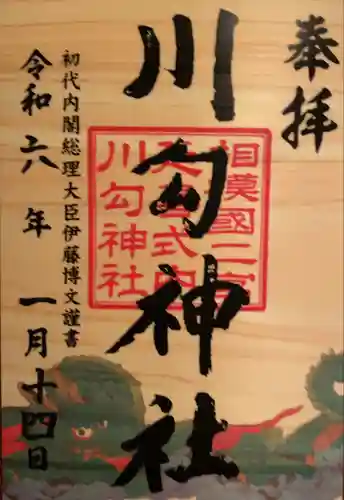 奉拝
川勾神社
相模國二宮
延喜式内
川勾神社
初代内閣総理大臣伊藤博文謹書
令和六年 一月十四日